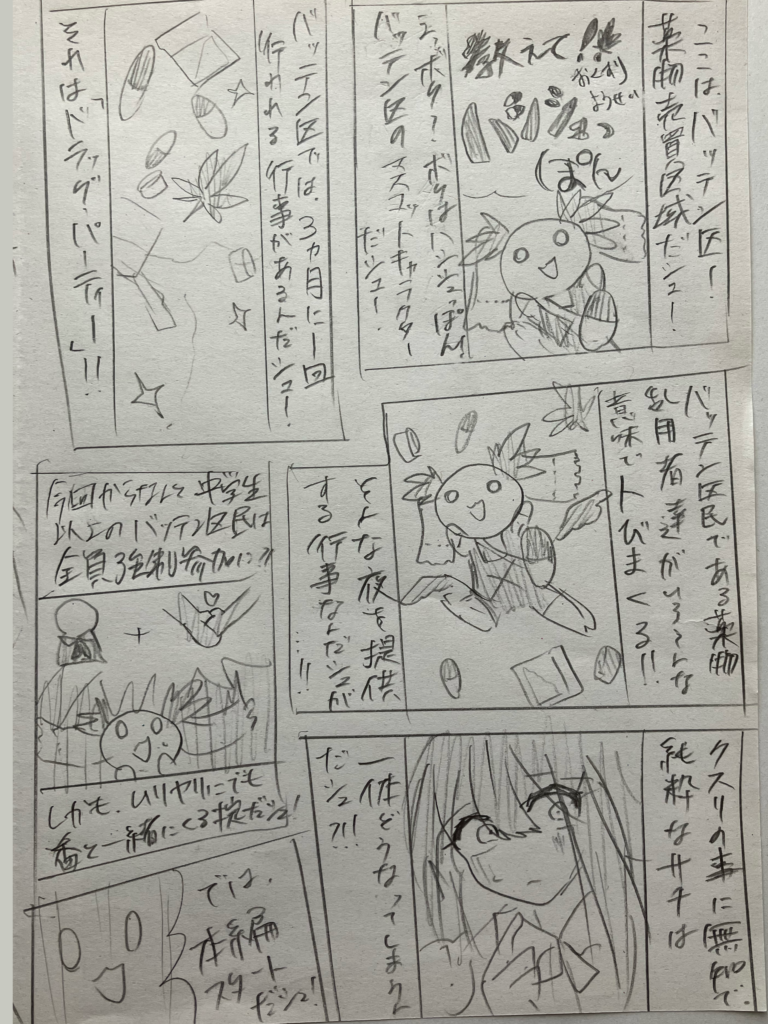 ここは、バッテン区!
薬物売買区域だシュ!
教えて!!
おくすり
ようせい
ハシシュっ
ぽん
えっボク?ボクはハシシュっぽん!
バッテン区のマスコットキャラクター
だシュー!
バッテン区では、3ヵ月に1回
行われる行事があるんだシュー!
それは「ドラッグ・パーティー」!!
バッテン区民である薬物
乱用者達がいろんな
意味でトびまくる!!
そんな夜を提供
する行事なんだシュが
…!!
今回からなんと中学生
以上のバッテン区民は
全員強制参加に?!
+
しかも、ムリヤリにでも
番と一緒にくる掟だシュ!
クスリの事に無知で、
純粋なサチは
一体どうなってしまうん
だシュ?!!
では、
本編
スタート
だシュ!